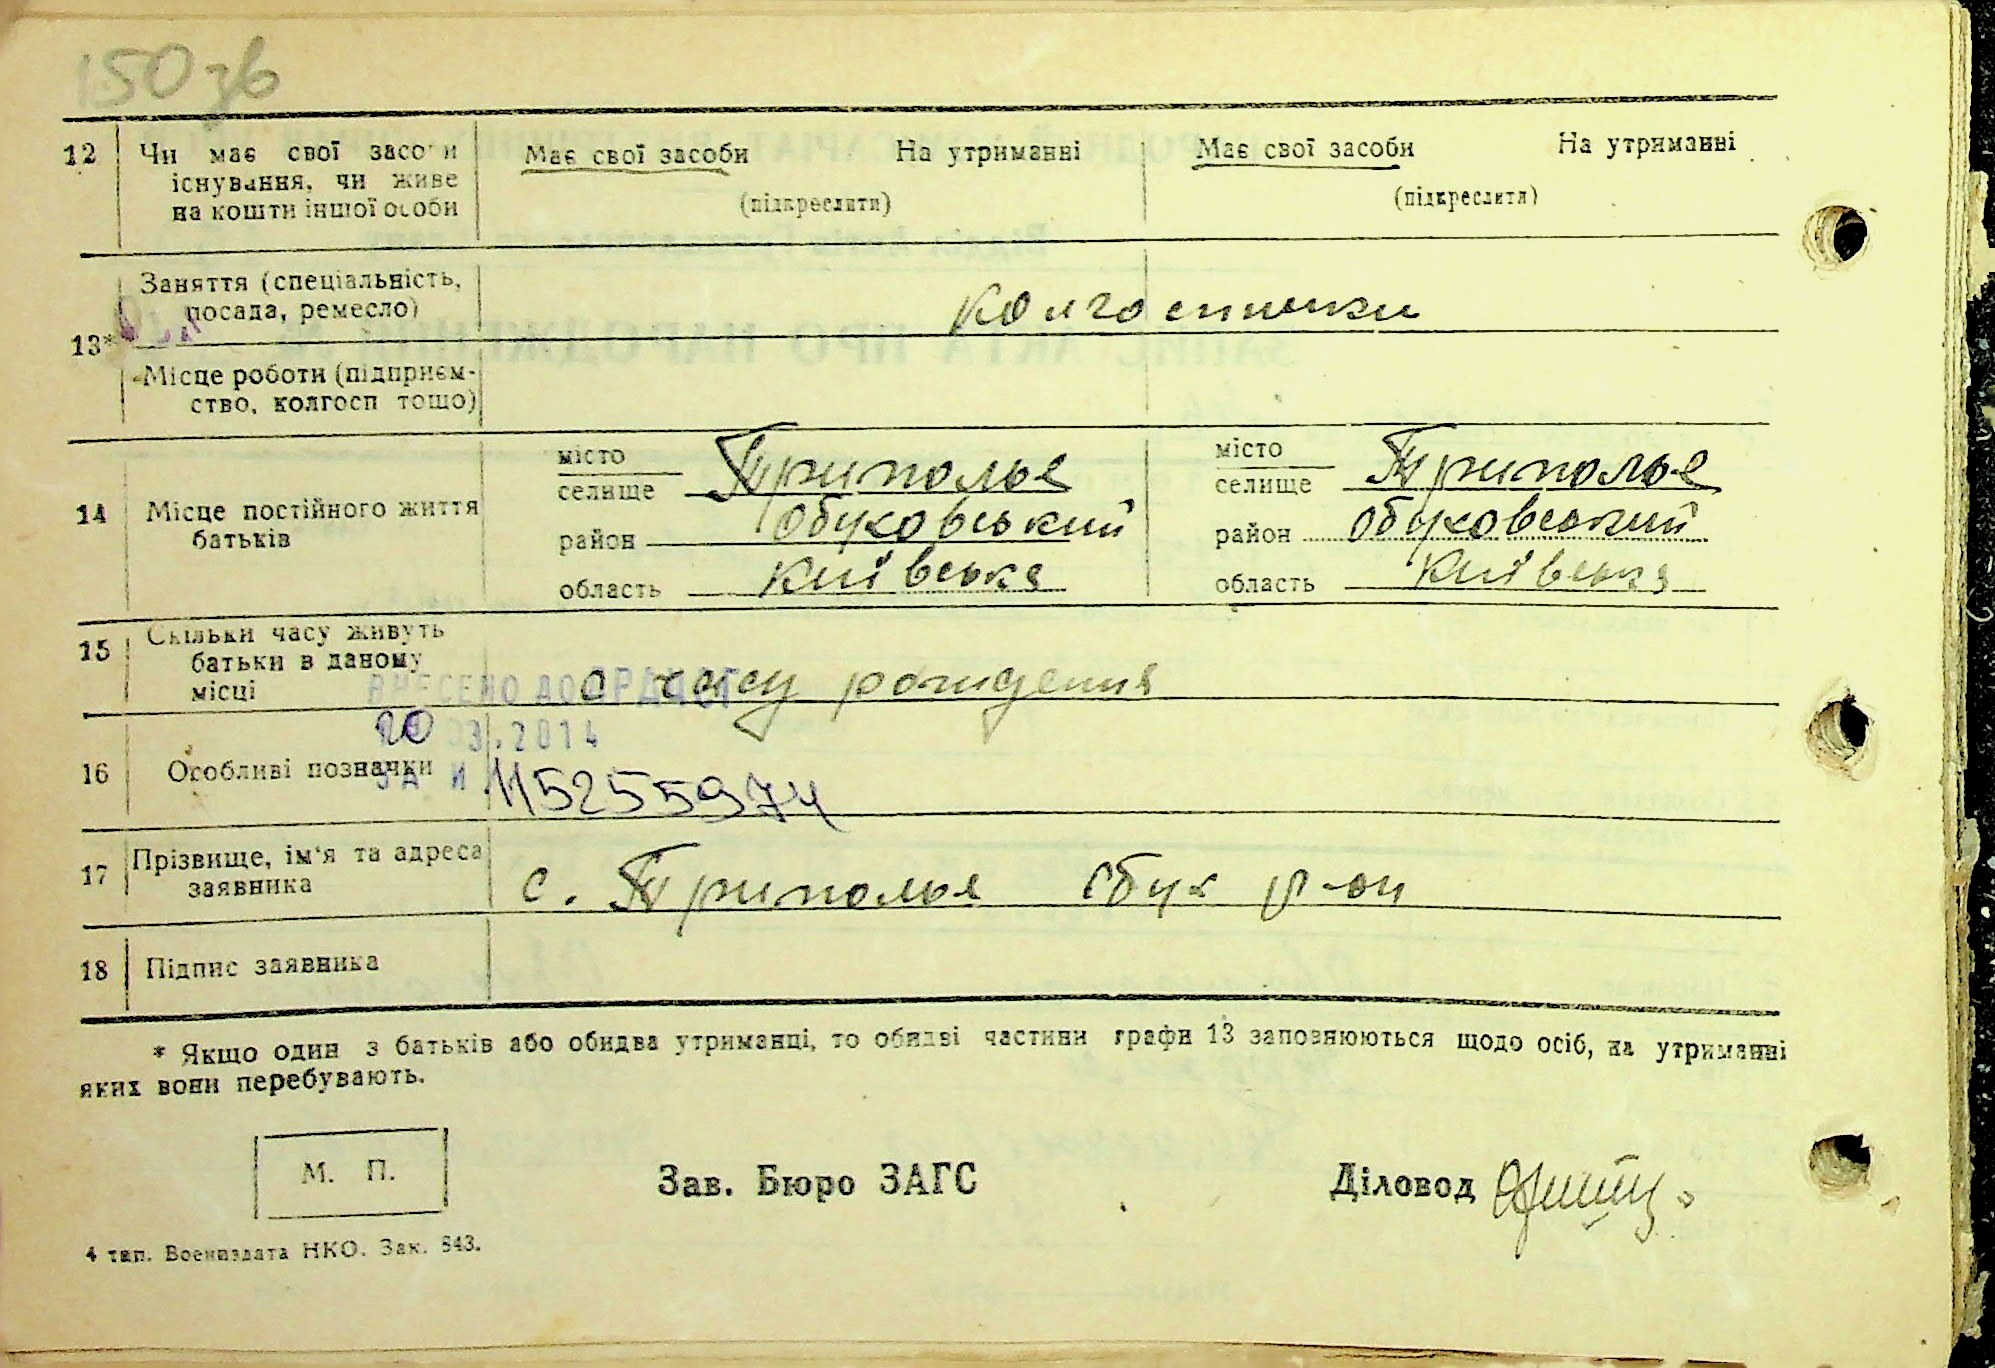 150 зв
12 Чи має свої засоби Має свої засоби На утриманні Має свої засоби На утриманні
існування, чи живе
на кошти іншої особи (підкреслити) (підкреслити)
Заняття (спеціальність,
посада, ремесло) колгоспники
13*
Місце роботи (підприєм-
ство, колгосп тощо)
місто місто
селище Триполье селище Триполье
14 Місце постійного життя район Обуховський район Обуховський
батьків
область Київська область Київська
15 Скільки часу живуть
батьки в даному
місці с часу рождения
ВНЕСЕНО ДО ДРАЦСГ
20 03.2014
16 Особливі позначки
ЗА № 115255974
17 Прізвище, ім'я та адреса
заявника с. Триполья Обук р-он
18 Підпис заявника
* Якщо один з батьків або обидва утриманці, то обидві частини графи 13 заповнюються щодо осіб, на утриманні
яких вони перебувають.
М. П. Зав. Бюро ЗАГС Діловод
4 тип. Воениздата НКО. Зак. 843.